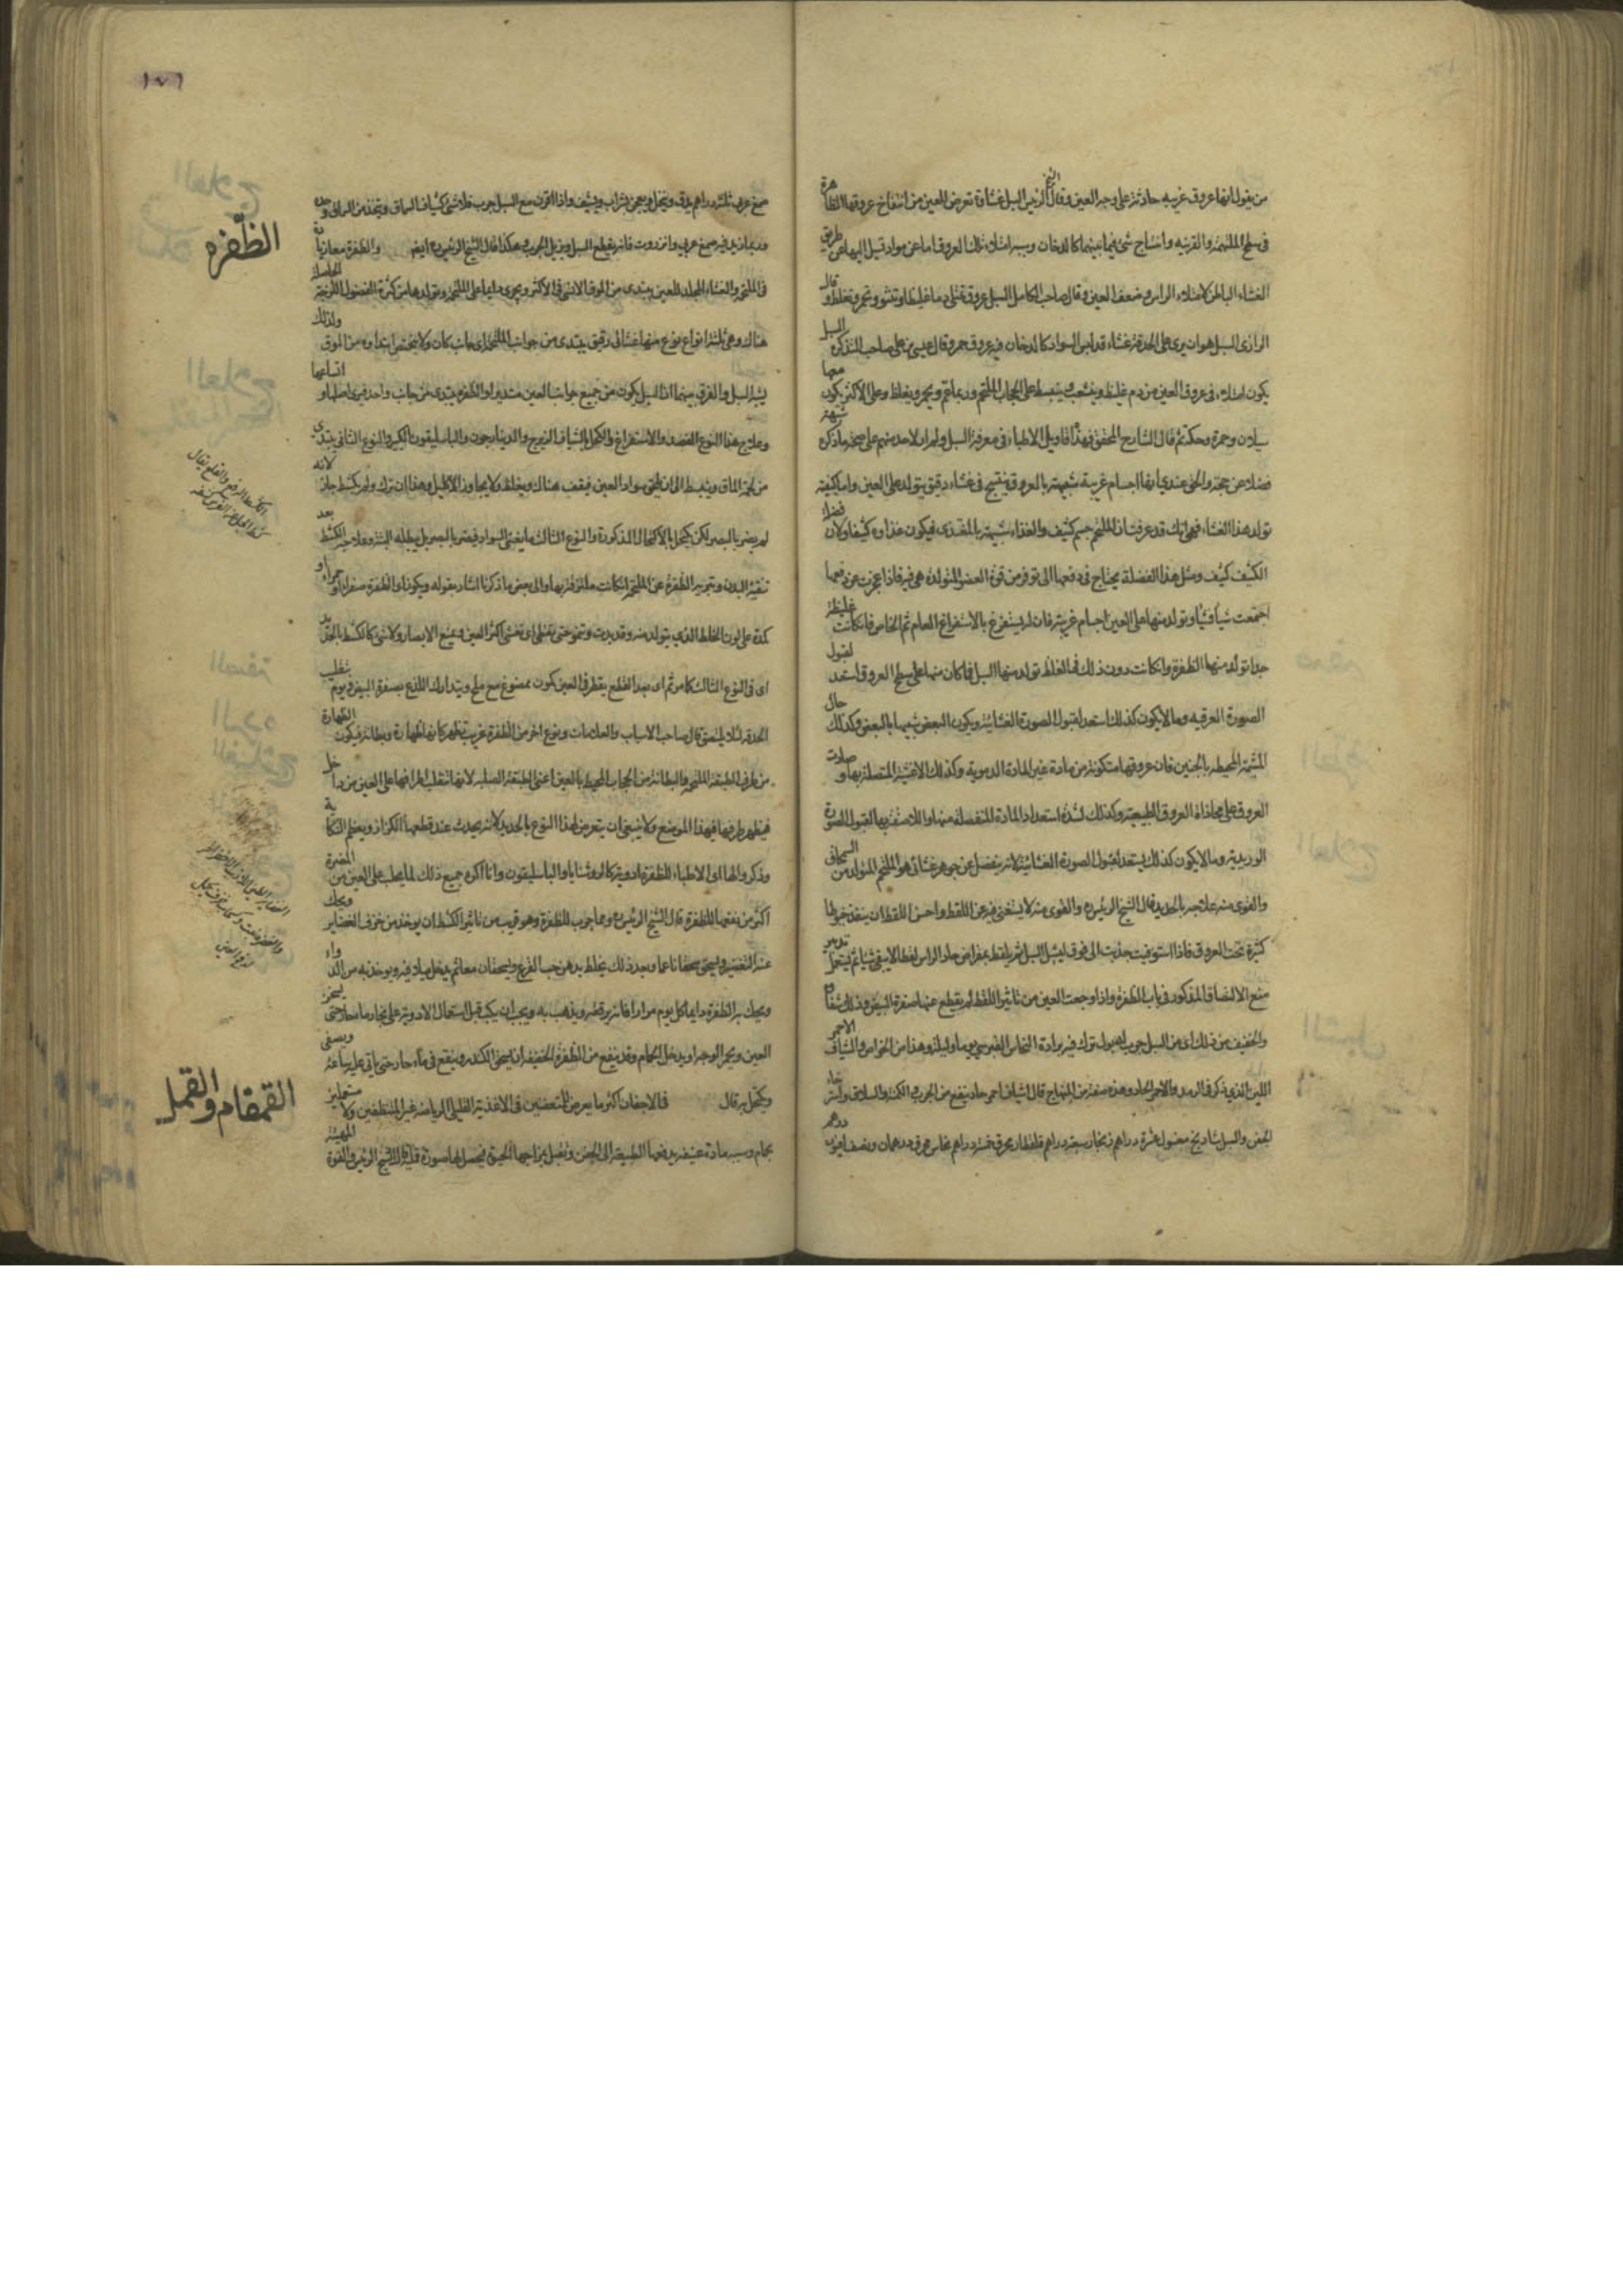 من يقول انها عروق غريبه حادثة على وجه العين وقال الشيخ الرئيس السبل غشاوة تعرض للعين من انتفاخ عروقها الظاهرة
في سطح الملتحمة والقرنيه وانتساج شئ فيما بينهما كالدخان وسببه امتلاء تلك العروق اما عن مواد تسيل اليها من طريق
الغشاء الباطن لامتلاء الراس وضعف العين وقال صاحب الكامل السبل عروق تمتلى دما غليظا وتنتو وتحمر وتغلظ وقال
الرازى السبل هو ان يرى على الحدقة غشاء قد لبس السواد كالدخان فيه عروق حمر وقال عيسى بن على صاحب التذكره السبل
يكون امتلاء فى عروق العين من دم غليظ وينشعب وينبسط على الحجاب الملتحم وربما تحمر ويغلظ وعلى الاكثر يكون معها
سيلان وحمرة وحكة ثم قال الشارح المحقق فهذه اقاويل الاطباء فى معرفة السبل ولم ار لاحد منهم على صحة ما ذكره شبهة
فضلا عن حجة والحق عندي انها اجسام غريبة شبيهة بالعروق ينتسج فى غشاء رقيق يتولد على العين واما كيفية
تولد هذا الغشاء فهي انك قد عرفت ان الملتحم جسم كثيف والغذاء شبيه بالمغتذى فيكون غذاوه كثيفا ولان فضلة
الكثيف كثيف ومثل هذا الفضلة يحتاج فى دفعها الى توفر من قوة العضو المتولدة هى فيه فاذا عجزت عن دفعها
اجتمعت شيا فشيا وتولد منها على العين اجسام غريبة فان لم يستفرغ بالاستفراغ العام ثم الخاص فان كانت غليظة
جدا تولد منها الظفرة وان كانت دون ذلك فى الغلظ تولد منها السبل فما كان منها على سطح العروق استعد لقبول
الصورة العرقيه وما لا يكون كذلك استعد لقبول الصورة الغشائية ويكون البعض شبيها بالبعض وكذلك حال
المشيمة المحيطه بالجنين فان عروقها متكونة من مادة غير المادة الدموية وكذلك الاغشية المتصلة بها وصارت
العروق على محاذاة العروق الطبيعية وكذلك لشدة استعداد المادة المنفصلة منها واللاصقة بها لقبول الصورة
الوريدية وما لا يكون كذلك يستعد لقبول الصورة الغشائية لانه ينفصل عن جوهر غشائى هو الملتحم المتولد من السمحاق
والقوى منه علاجه بالحديد قال الشيخ الرئيس والقوى منه لا يستغنى فيه عن اللقط واحسن اللقط ان ينفذ خيوط
كثيرة تحت العروق فاذا استوفيت جذبت الى فوق ليشيل السبل ثم يلقط بمقراض حاد الراس لقطا لا يبقى شيا ثم يستعمل تدبير
منع الالتصاق المذكور فى باب الظفرة واذا وجعت العين من تاثير اللقط لم يقطع عنها صفرة البيض وذلك شفاه
والخفيف من ذلك اى من السبل جرب له بول ترك فيه برادة النحاس القبرسي يوما وليلة وهذا من الخواص والشياف الاحمر
اللين الذي ذكر فى الرمد والاحمر الحاد وهذه صفته من المنهاج قال الشياف احمر حاد ينفع من الجرب والكمنة والسلاق واسترخاء
الجفن والسبل شادنج مغسول عشرة دراهم زنجار سبعة دراهم قلقطار محرق خمسة دراهم نحاس محرق درهمان ونصف افيون درهم
١٧٦
صمغ عربى ثلثة دراهم يدق وينخل ويعجن بشراب ويشيف واذا اقترن مع السبل جرب فلا شئ كشياف السماق ويتخذ من السماق وحده
وربما زيد فيه صمغ عربي وانزروت فانه يقطع السبل ويزيل الجرب هكذا قال الشيخ الرئيس ايضا والظفرة معا زيادة
الظفره
فى الملتحم والغشاء المجلل للعين يبتدى من الموق الانسى فى الاكثر ويجرى دايما على الملتحم وتولدها من كثرة الفضول اللزجة الحاصلة
هناك وهي ثلثة انواع نوع منها غشائى رقيق يبتدى من جوانب الملتحم اى جانب كان ولا يختص ابتداوه من الموق ولذلك
يشبه السبل والفرق بينهما ان السبل يكون من جميع جوانب العين مستديرا والظفره يبتدى من جانب واحد فيرى اصلها واتساعها
وعلاج هذا النوع الفصد والاستفراغ والكحل بالشياف الزنج والدينارجون والباسليقون الكبير والنوع الثانى يبتدي
من لحمة الماق وينبسط الى ان يلحق سواد العين فيقف هناك ويغلظ ولا يجاوز الاكليل وهذا ان ترك ولم يكشط جاز لانه
لم يضر بالبصر لكن يكحل بالاكحال المذكورة والنوع الثالث ما يغشى السواد فيضر بالبصر بل يبطله البتة وعلاجه الكشط بعد
تنقية البدن وتجريد الظفرة عن الملتحم ان كانت ملتزقة بها والى بعض ما ذكرنا اشار بقوله ويكون اى الظفرة صفراء او حمراء او
كمدة على لون الخلط الذي يتولد منه وقد يدب وتنمو حتى تغطى اى تغشى اكثر العين ويمنع الابصار ولا شئ كالكشط بالحديد
اى فى النوع الثالث كما مر ثم اى بعد القطع يقطر فى العين كمون ممضوغ مع ملح ويتدارك اللذع بصفرة البيض ويوم بتقليب
الحدقه لئلا يلتصق قال صاحب الاسباب والعلامات ونوع اخر من الظفرة غريب تظهر كانها ظهارة وبطانة فيكون الظهارة
من طرف الطبقة الملتحمة والبطانة من الحجاب المحيط بالعين اعنى الطبقة الصلبه لانها تنقلب اطرافها على العين من داخل
فيظهر طرفها فى هذا الموضع ولا ينبغى ان يتعرض لهذا النوع بالحديد لانه يحدث عند قطعها الكزاز ويعظم النكاية
وذكروا لها اى الاطباء للظفرة ادوية كالروشنايا والباسليقون وانا اكره جميع ذلك لما يجلب على العين من المضرة
اكثر من نفعها للظفرة قال الشيخ الرئيس ومما جرب للظفرة وهو قريب من تاثير الكشط ان يوخذ من خزف الغضاير ويحك
عنه التغضير ويسحق سحقا ناعما وبعد ذلك يخلط بدهن حب القرع ويسحقان معا ثم يدخل ميلا فيه ويوخذ به من الدواء
ويحك به الظفرة دايما كل يوم مرارا فانه يرققه ويذهب به ويجب ان يكب قبل استعمال الادوية على بخار ماء حار حتى يسخن
العين ويحمر الوجه او يدخل الحمام وقد ينفع من الظفرة الخفيفه ان يسحق الكندر وينقع فى ماء حار حتى ياتى عليه ساعة ويصفى
ويكتحل به قال فى الاجفان اكثر ما يعرض للمتعصبين فى الاغذية القليلى الرياضه غير المتنظفين ولا مستحمين
القمقام والقمل
بحمام وسببه مادة عفنه يدفعها الطبيعة الى الجفن وتقبل بمزاجها الحيوة فيحصل لها صورة قملية قال الشيخ الرئيس والقوة المهيئة